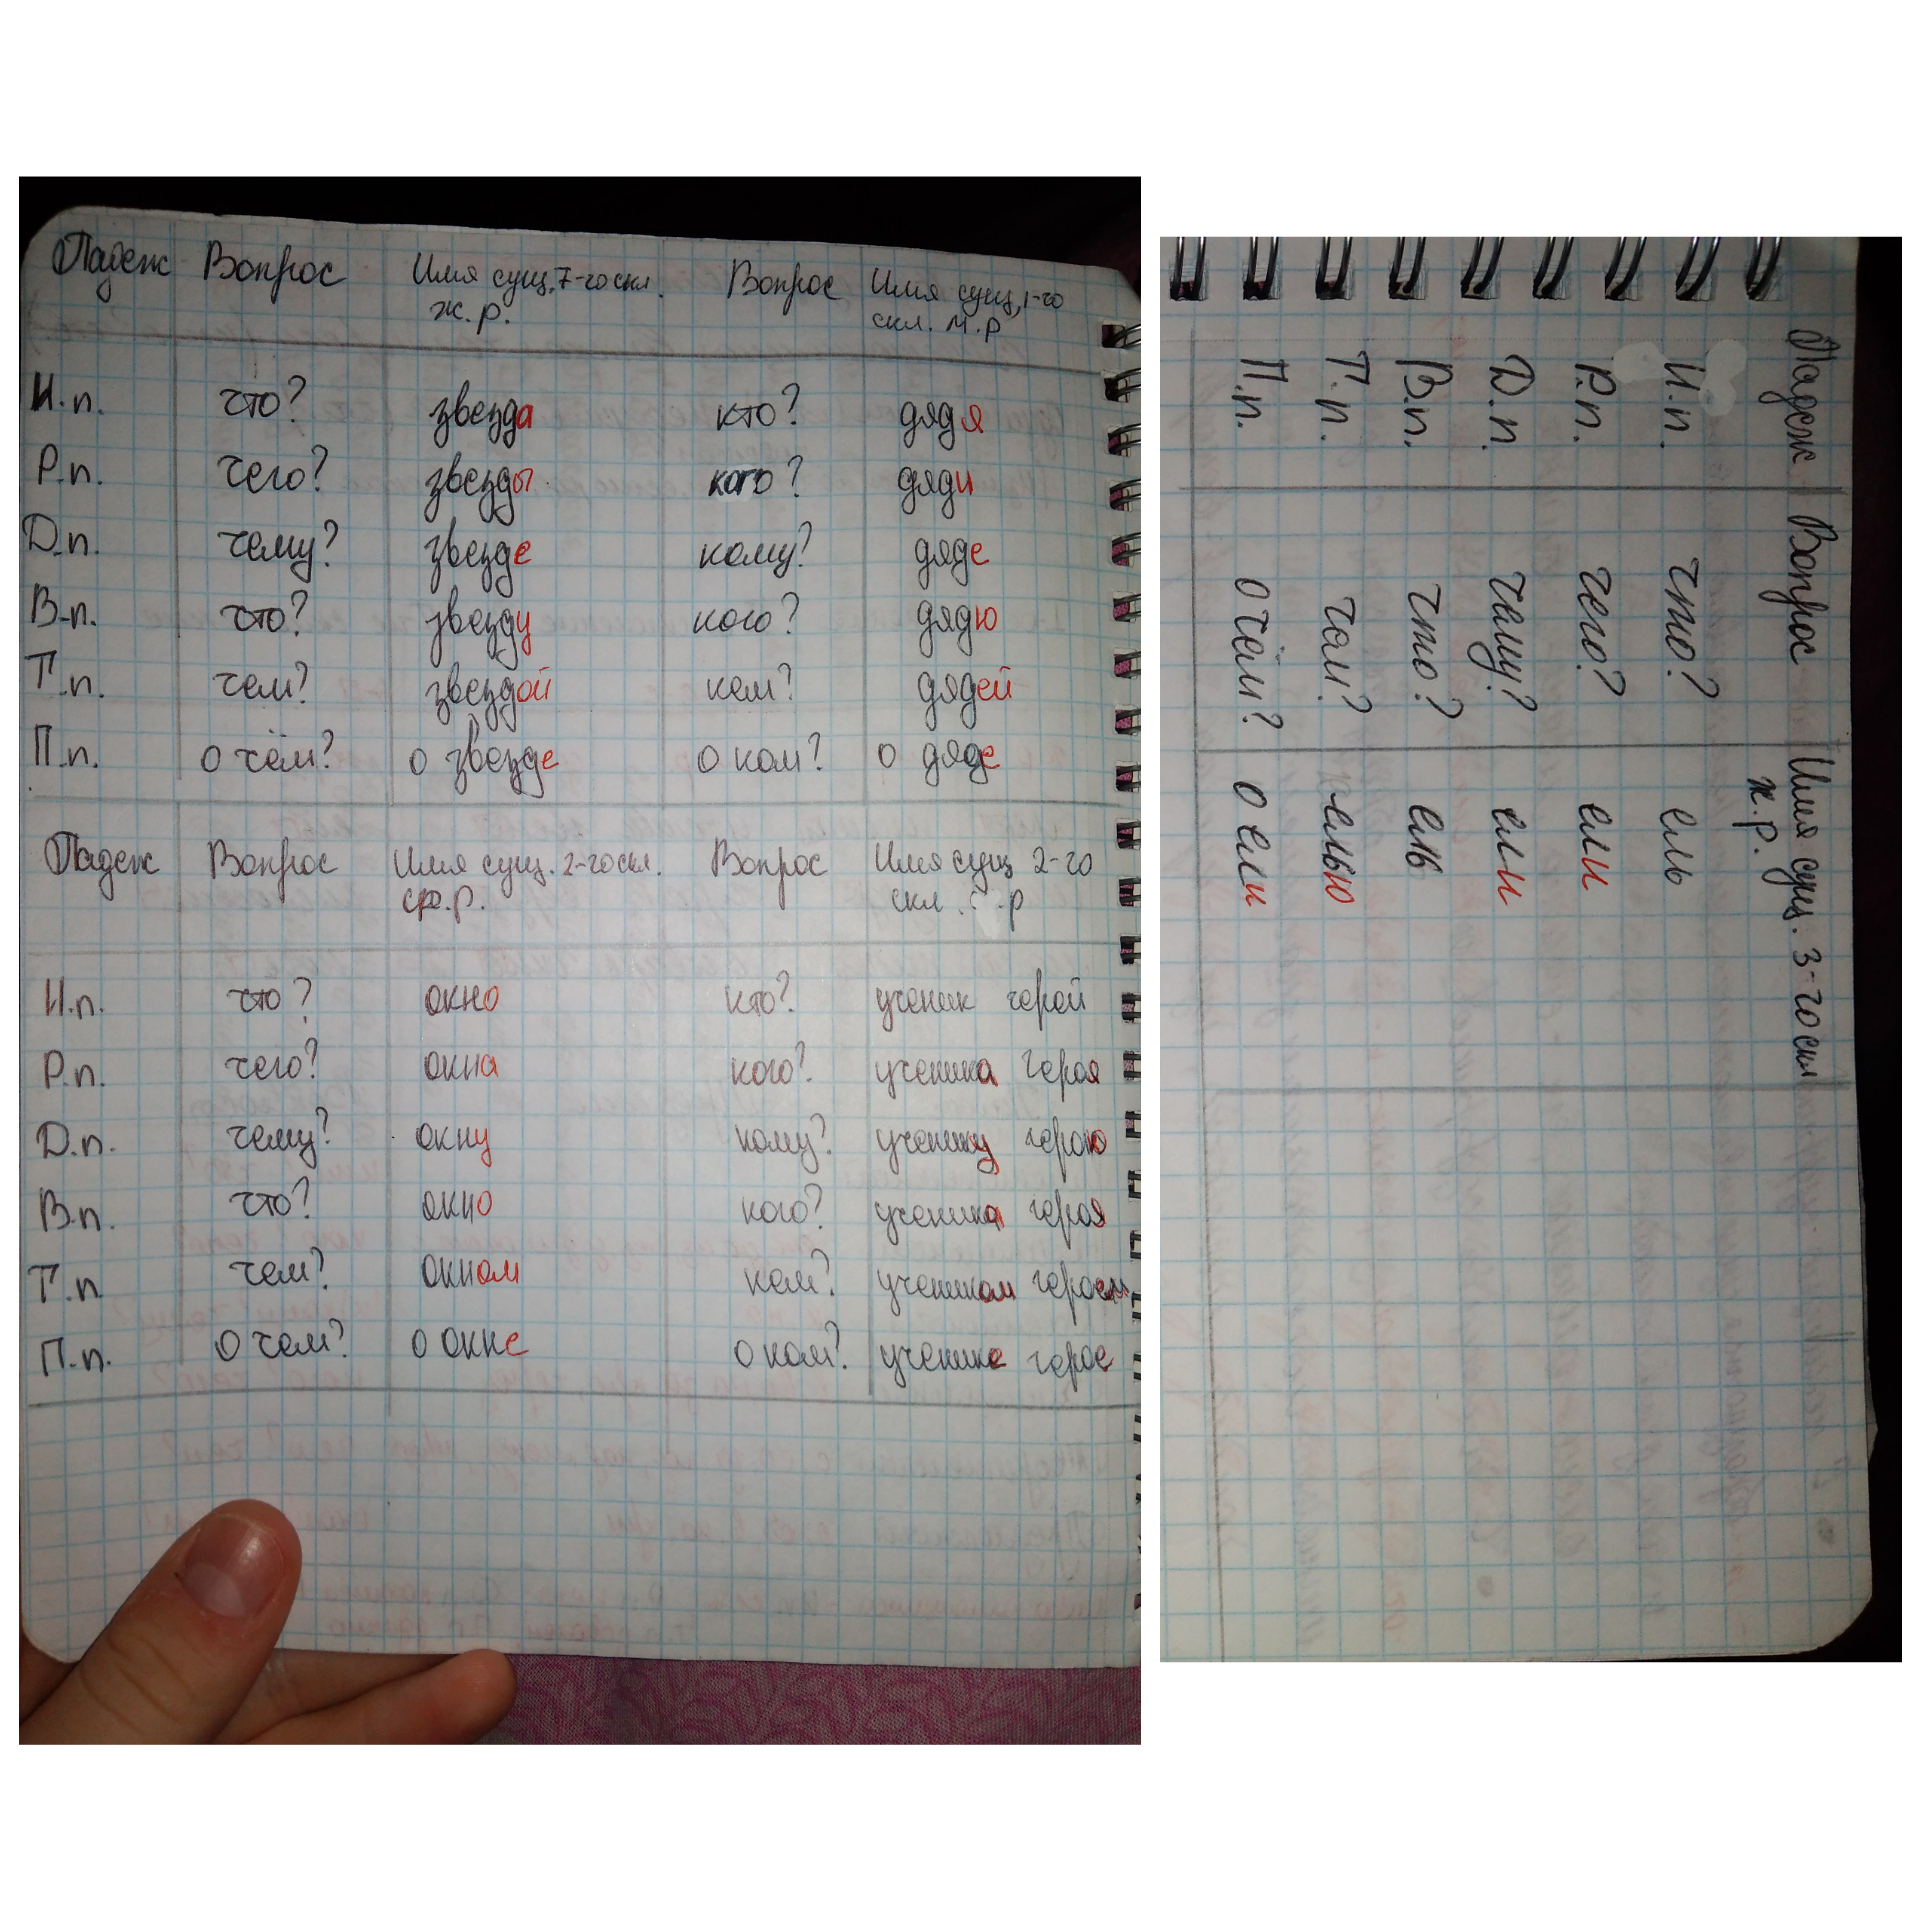 Падеж Вопрос Имя сущ. 1-го скл. Вопрос Имя сущ. 1-го
ж.р. скл. м.р
И.п. что? звезда кто? дядя
Р.п. чего? звезды кого? дяди
Д.п. чему? звезде кому? дяде
В.п. что? звезду кого? дядю
Т.п. чем? звездой кем? дядей
П.п. о чём? о звезде о ком? о дяде
Падеж Вопрос Имя сущ. 2-го скл. Вопрос Имя сущ 2-го
ср.р. скл. р
И.п. что? окно кто? ученик герой
Р.п. чего? окна кого? ученика героя
Д.п. чему? окну кому? ученику герою
В.п. что? окно кого? ученика героя
Т.п. чем? окном кем? учеником героем
П.п. о чем? о окне о ком? ученике герое
Падеж Вопрос Имя сущ. 3-го скл
ж.р.
И.п. что? ель
Р.п. чего? ели
Д.п. чему? ели
В.п. что? ель
Т.п. чем? елью
П.п. о чём? о ели